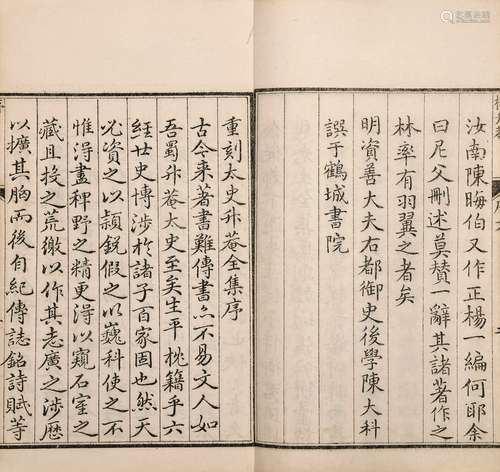 汝南陳晦伯又作正楊一編何耶余
曰尼父刪述莫贊一辭其諸著作之
林率有羽翼之者矣
明資善大夫右都御史後學陳大科
譔于鶴城書院
重刻太史升菴全集序
古今來著書難傳書亦不易文人如
吾蜀升菴太史至矣生平枕籍乎六
經廿史博涉於諸子百家固也然天
必資之以頴銳假之以巍科使之不
惟淂盡稗野之精更淂以窺石室之
藏且投之荒徼以作其志廣之涉歷
以擴其胸而後自紀傳誌銘詩賦等